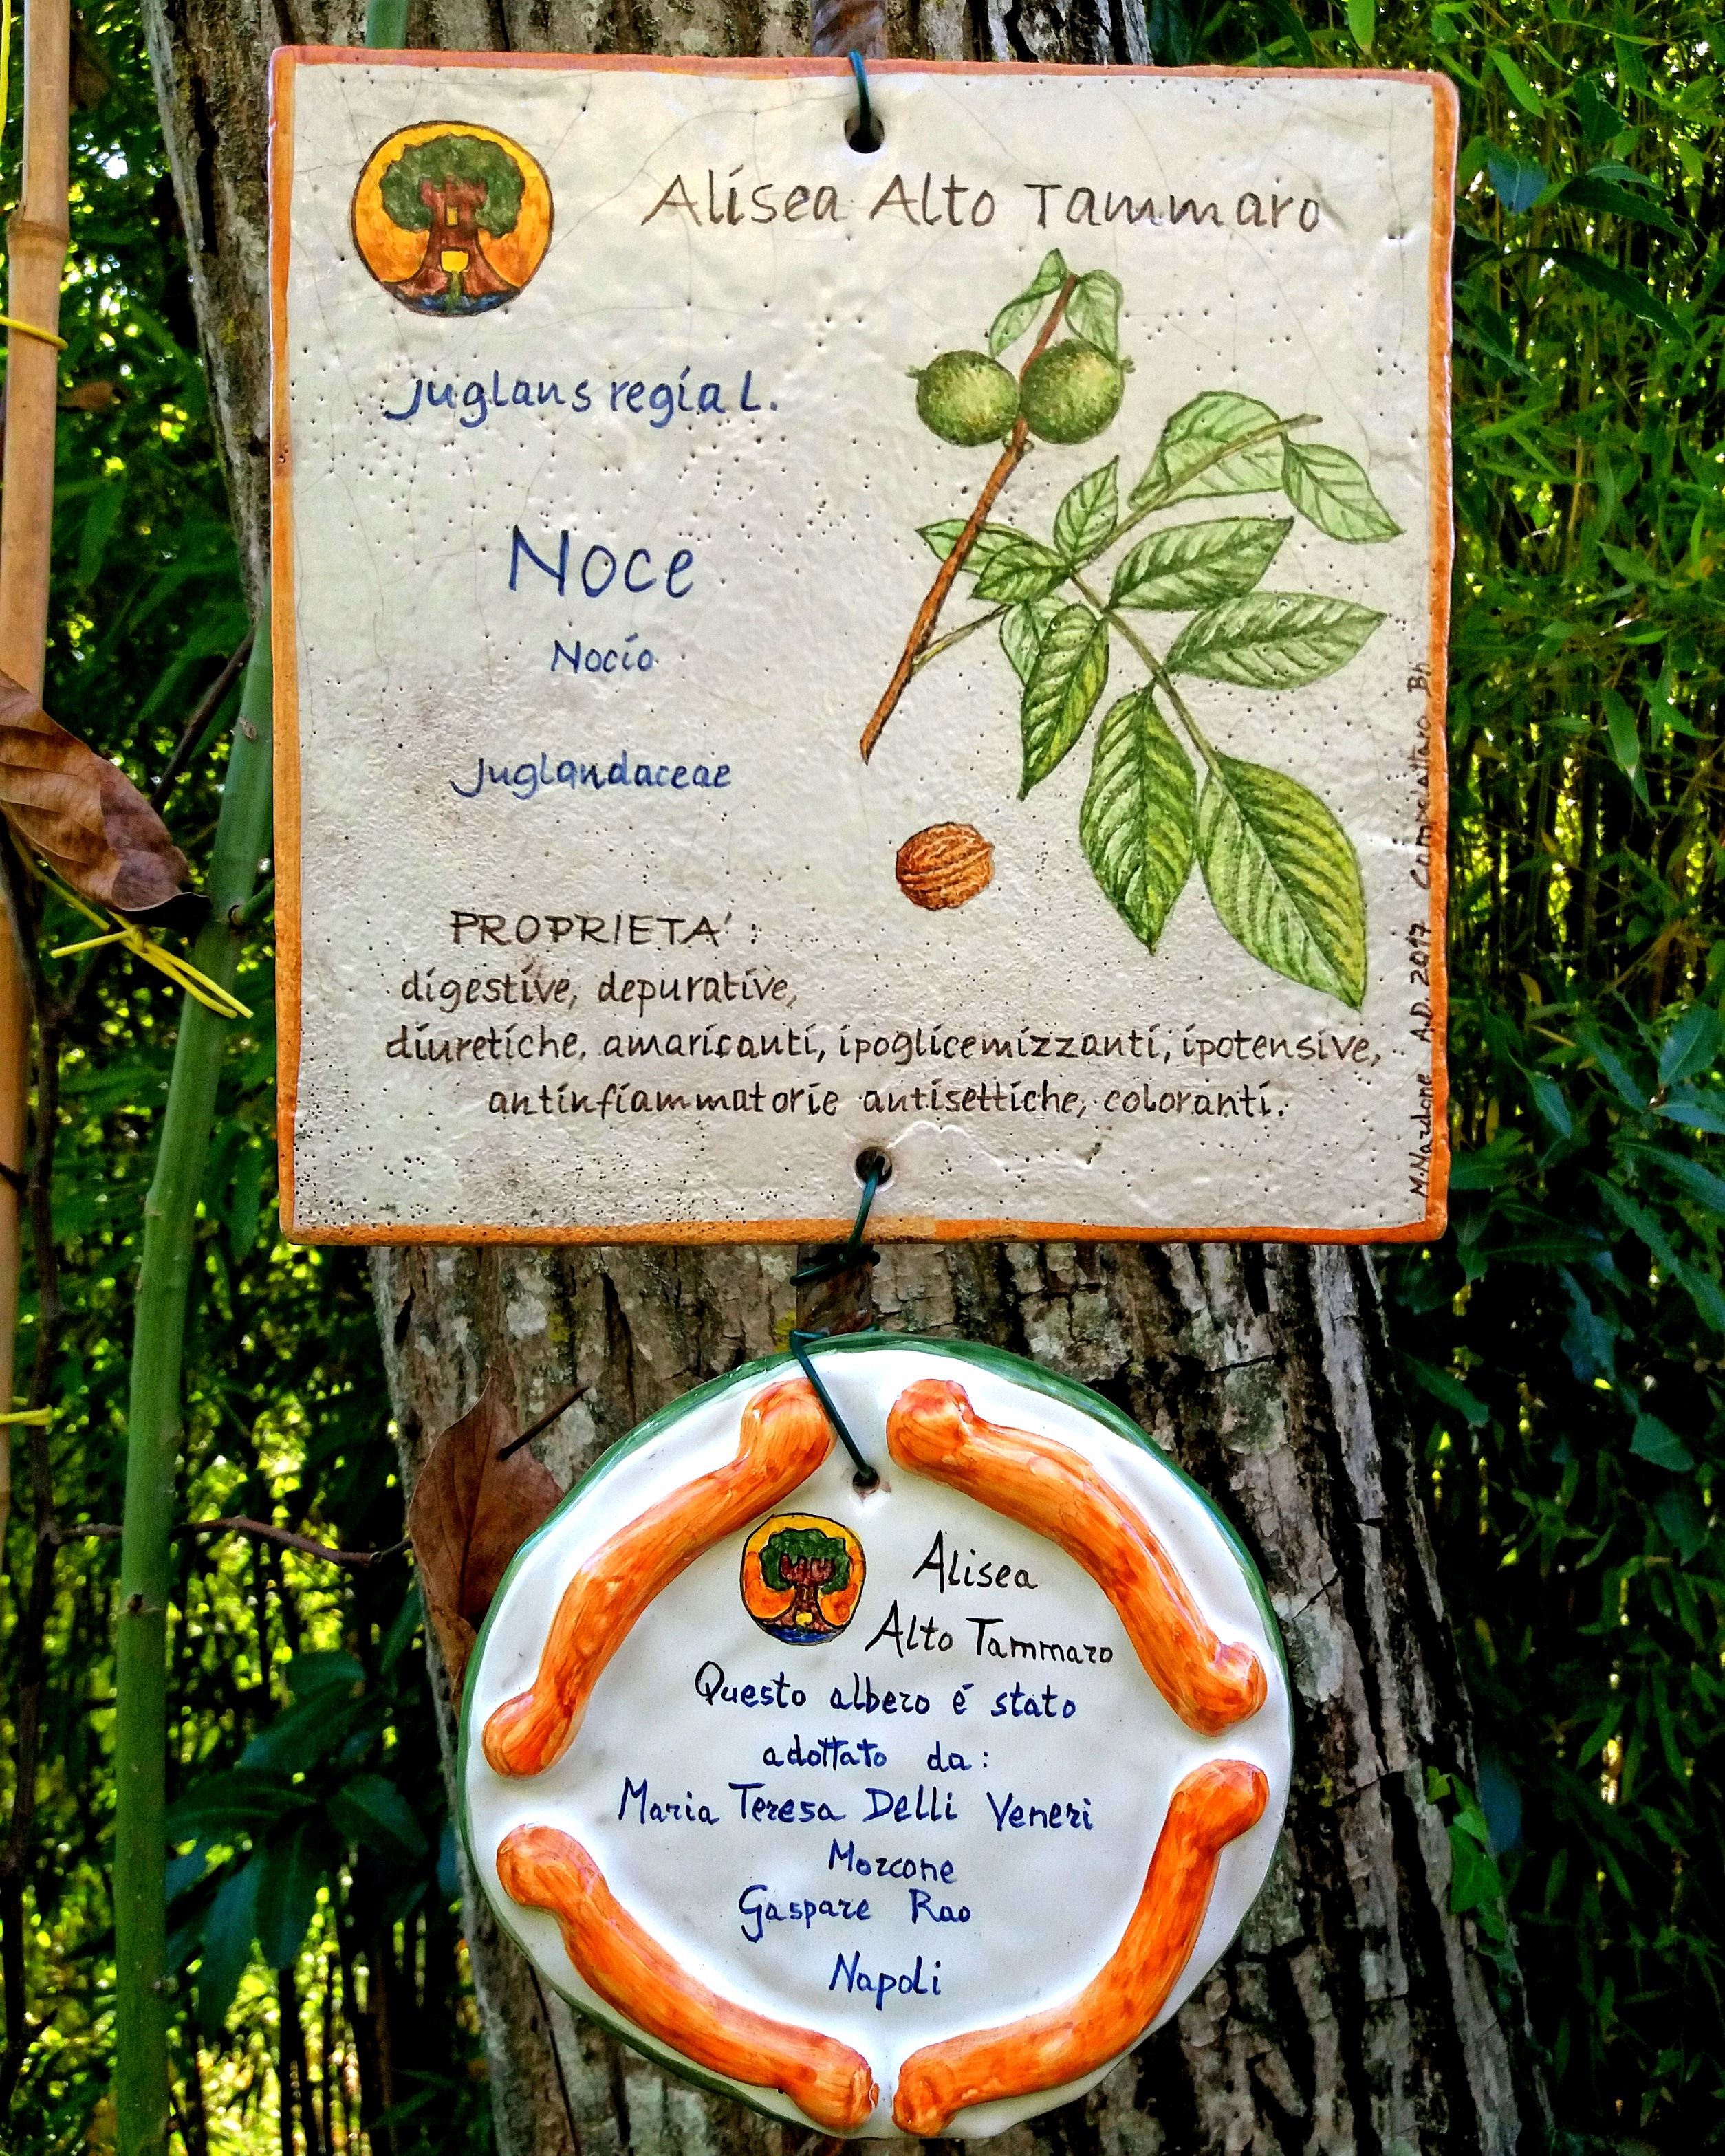 Alisea Alto Tammaro
Juglans regia L.
Noce
Nocio
Juglandaceae
PROPRIETA' :
digestive, depurative,
diuretiche, amaricanti, ipoglicemizzanti, ipotensive,
antinfiammatorie antisettiche, coloranti.
M. Nardone A.D. 2017 Campolattaro Bn
Alisea
Alto Tammaro
Questo albero é stato
adottato da:
Maria Teresa Delli Veneri
Morcone
Gaspare Rao
Napoli